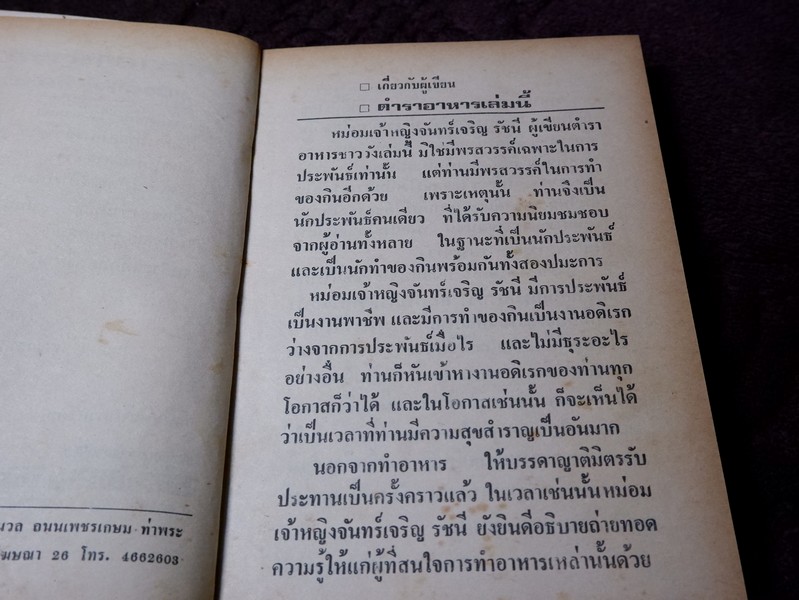 นวล ถนนเพชรเกษม ท่าพระ
ษณา 26 โทร. 4662603
□ เกี่ยวกับผู้เขียน
□ ตำราอาหารเล่มนี้
หม่อมเจ้าหญิงจันทร์เจริญ รัชนี ผู้เขียนตำรา
อาหารชาววังเล่มนี้ มิใช่มีพรสวรรค์เฉพาะในการ
ประพันธ์เท่านั้น แต่ท่านมีพรสวรรค์ในการทำ
ของกินอีกด้วย เพราะเหตุนั้น ท่านจึงเป็น
นักประพันธ์คนเดียว ที่ได้รับความนิยมชมชอบ
จากผู้อ่านทั้งหลาย ในฐานะที่เป็นนักประพันธ์
และเป็นนักทำของกินพร้อมกันทั้งสองปมะการ
หม่อมเจ้าหญิงจันทร์เจริญ รัชนี มีการประพันธ์
เป็นงานพาชีพ และมีการทำของกินเป็นงานอดิเรก
ว่างจากการประพันธ์เมื่อไร และไม่มีธุระอะไร
อย่างอื่น ท่านก็หันเข้าหางานอดิเรกของท่านทุก
โอกาสก็ว่าได้ และในโอกาสเช่นนั้น ก็จะเห็นได้
ว่าเป็นเวลาที่ท่านมีความสุขสำราญเป็นอันมาก
นอกจากทำอาหาร ให้บรรดาญาติมิตรรับ
ประทานเป็นครั้งคราวแล้ว ในเวลาเช่นนั้นหม่อม
เจ้าหญิงจันทร์เจริญ รัชนี ยังยินดีอธิบายถ่ายทอด
ความรู้ให้แก่ผู้ที่สนใจการทำอาหารเหล่านั้นด้วย